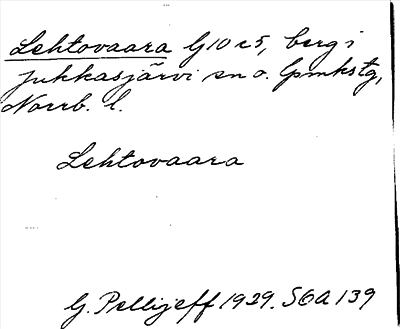 Lehtovaara G10c5, berg i
Jukkasjärvi sn o. lpmkstg,
Norrb. l.
Lehtovaara
G. Pellijeff 1929. SOA 139